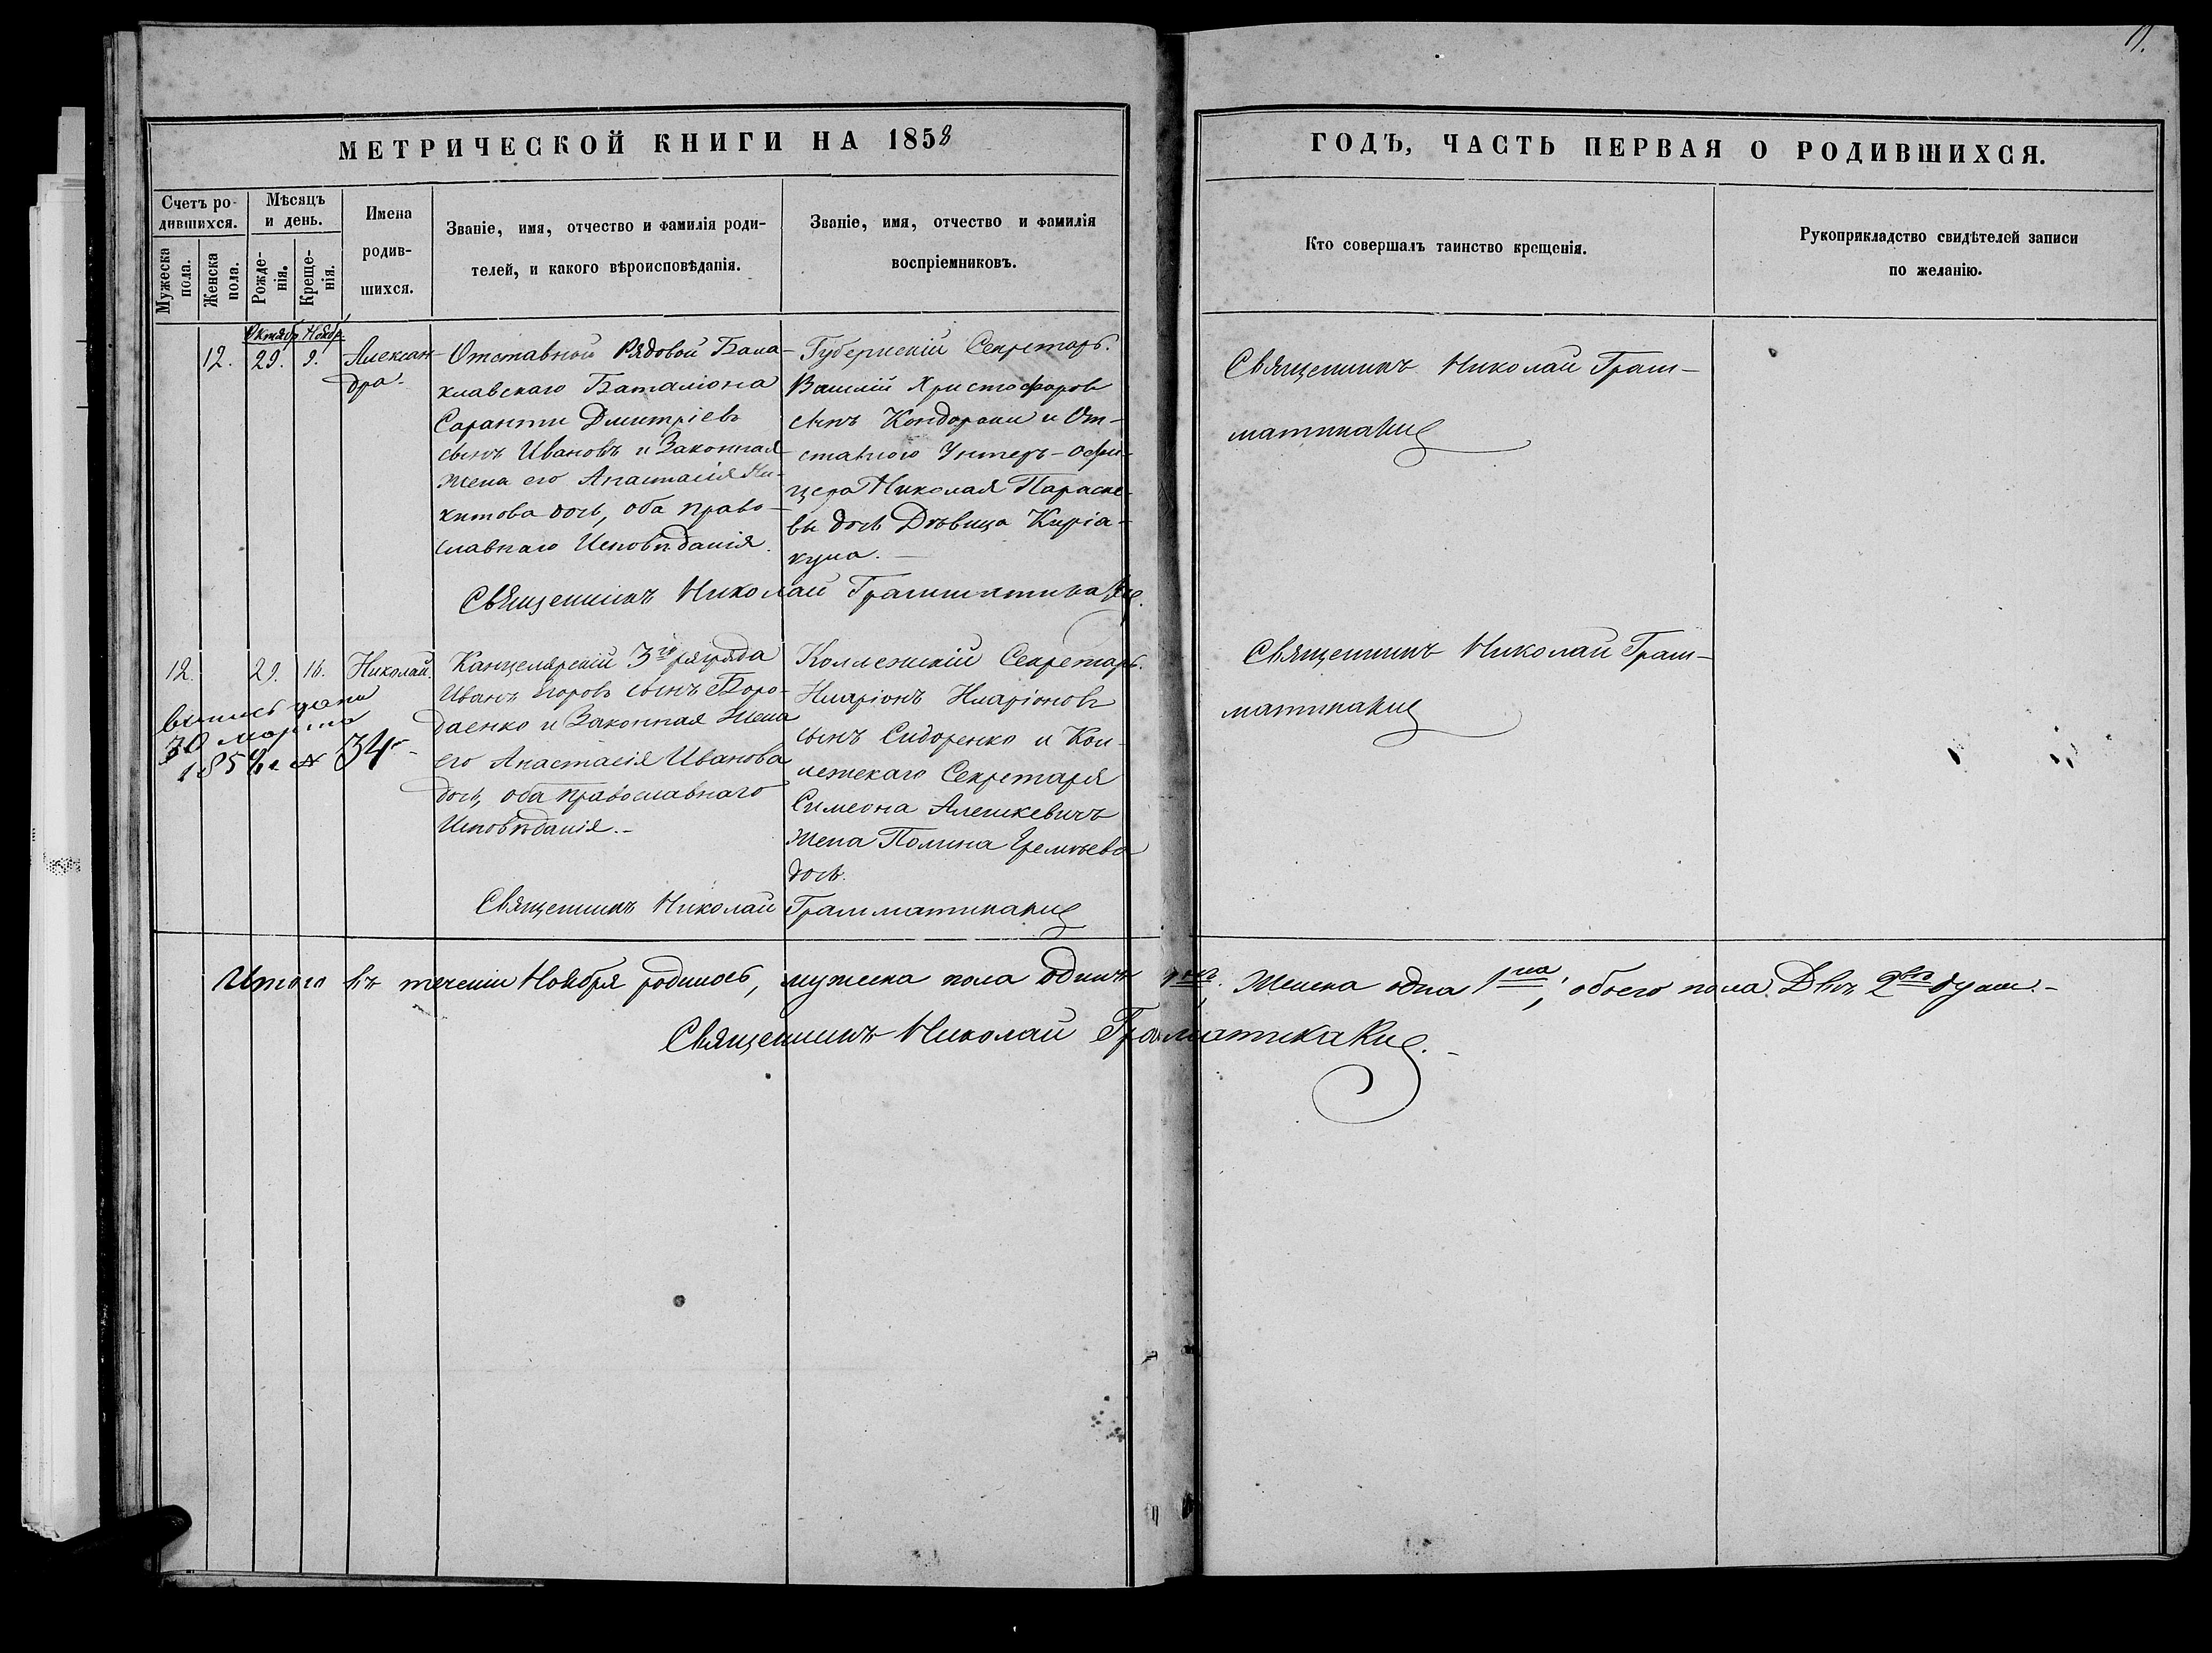 11.
МЕТРИЧЕСКОЙ КНИГИ НА 1858
ГОДЪ, ЧАСТЬ ПЕРВАЯ О РОДИВШИХСЯ.
Счетъ ро-
дившихся.
Мужеска пола.
Женска пола.
Мѣсяцъ
и день.
Рожде-
нія.
Креще-
нія.
Имена
родив-
шихся.
Званіе, имя, отчество и фамилія роди-
телей, и какого вѣроисповѣданія.
Званіе, имя, отчество и фамилія
воспріемниковъ.
Кто совершалъ таинство крещенія.
Рукоприкладство свидѣтелей записи
по желанію.
Октябр Ноябр.
12. 29. 9.
Алексан-
дра.
Отставной Рядовой Бала-
клавскаго Баталіона
Саранти Дмитріевъ
сынъ Ивановъ и Законная
жена его Анастасія Ни-
китова дочь, оба право-
славнаго Исповѣданія.
Губернскій Секретарь
Василій Христофоровъ
сынъ Кондораки и От-
ставного Унтеръ-Офи-
цера Николая Параске-
вы дочь Дѣвица Киріа-
кула.
Священникъ Николай Грам-
матикаки
Священникъ Николай Грамматикаки.
12. 29. 16.
Николай.
Канцелярскій 3го разряда
Иванъ Егоровъ сынъ Боро-
даенко и Законная Жена
его Анастасія Иванова
дочь, оба православнаго
Исповѣданія.
Коллежскій Секретарь
Иларіонъ Иларіоновъ
сынъ Сидоренко и Кол-
лежскаго Секретаря
Симеона Алешкевичъ
жена Полина
дочь.
Священникъ Николай Грам-
матикаки
30 марта
34
Священникъ Николай Грамматикаки
Итого въ теченіи Ноября родилось, мужеска пола одинъ 1нъ. Женска одна 1на; обоего пола Двѣ 2вѣ души.
Священникъ Николай Граматикаки.